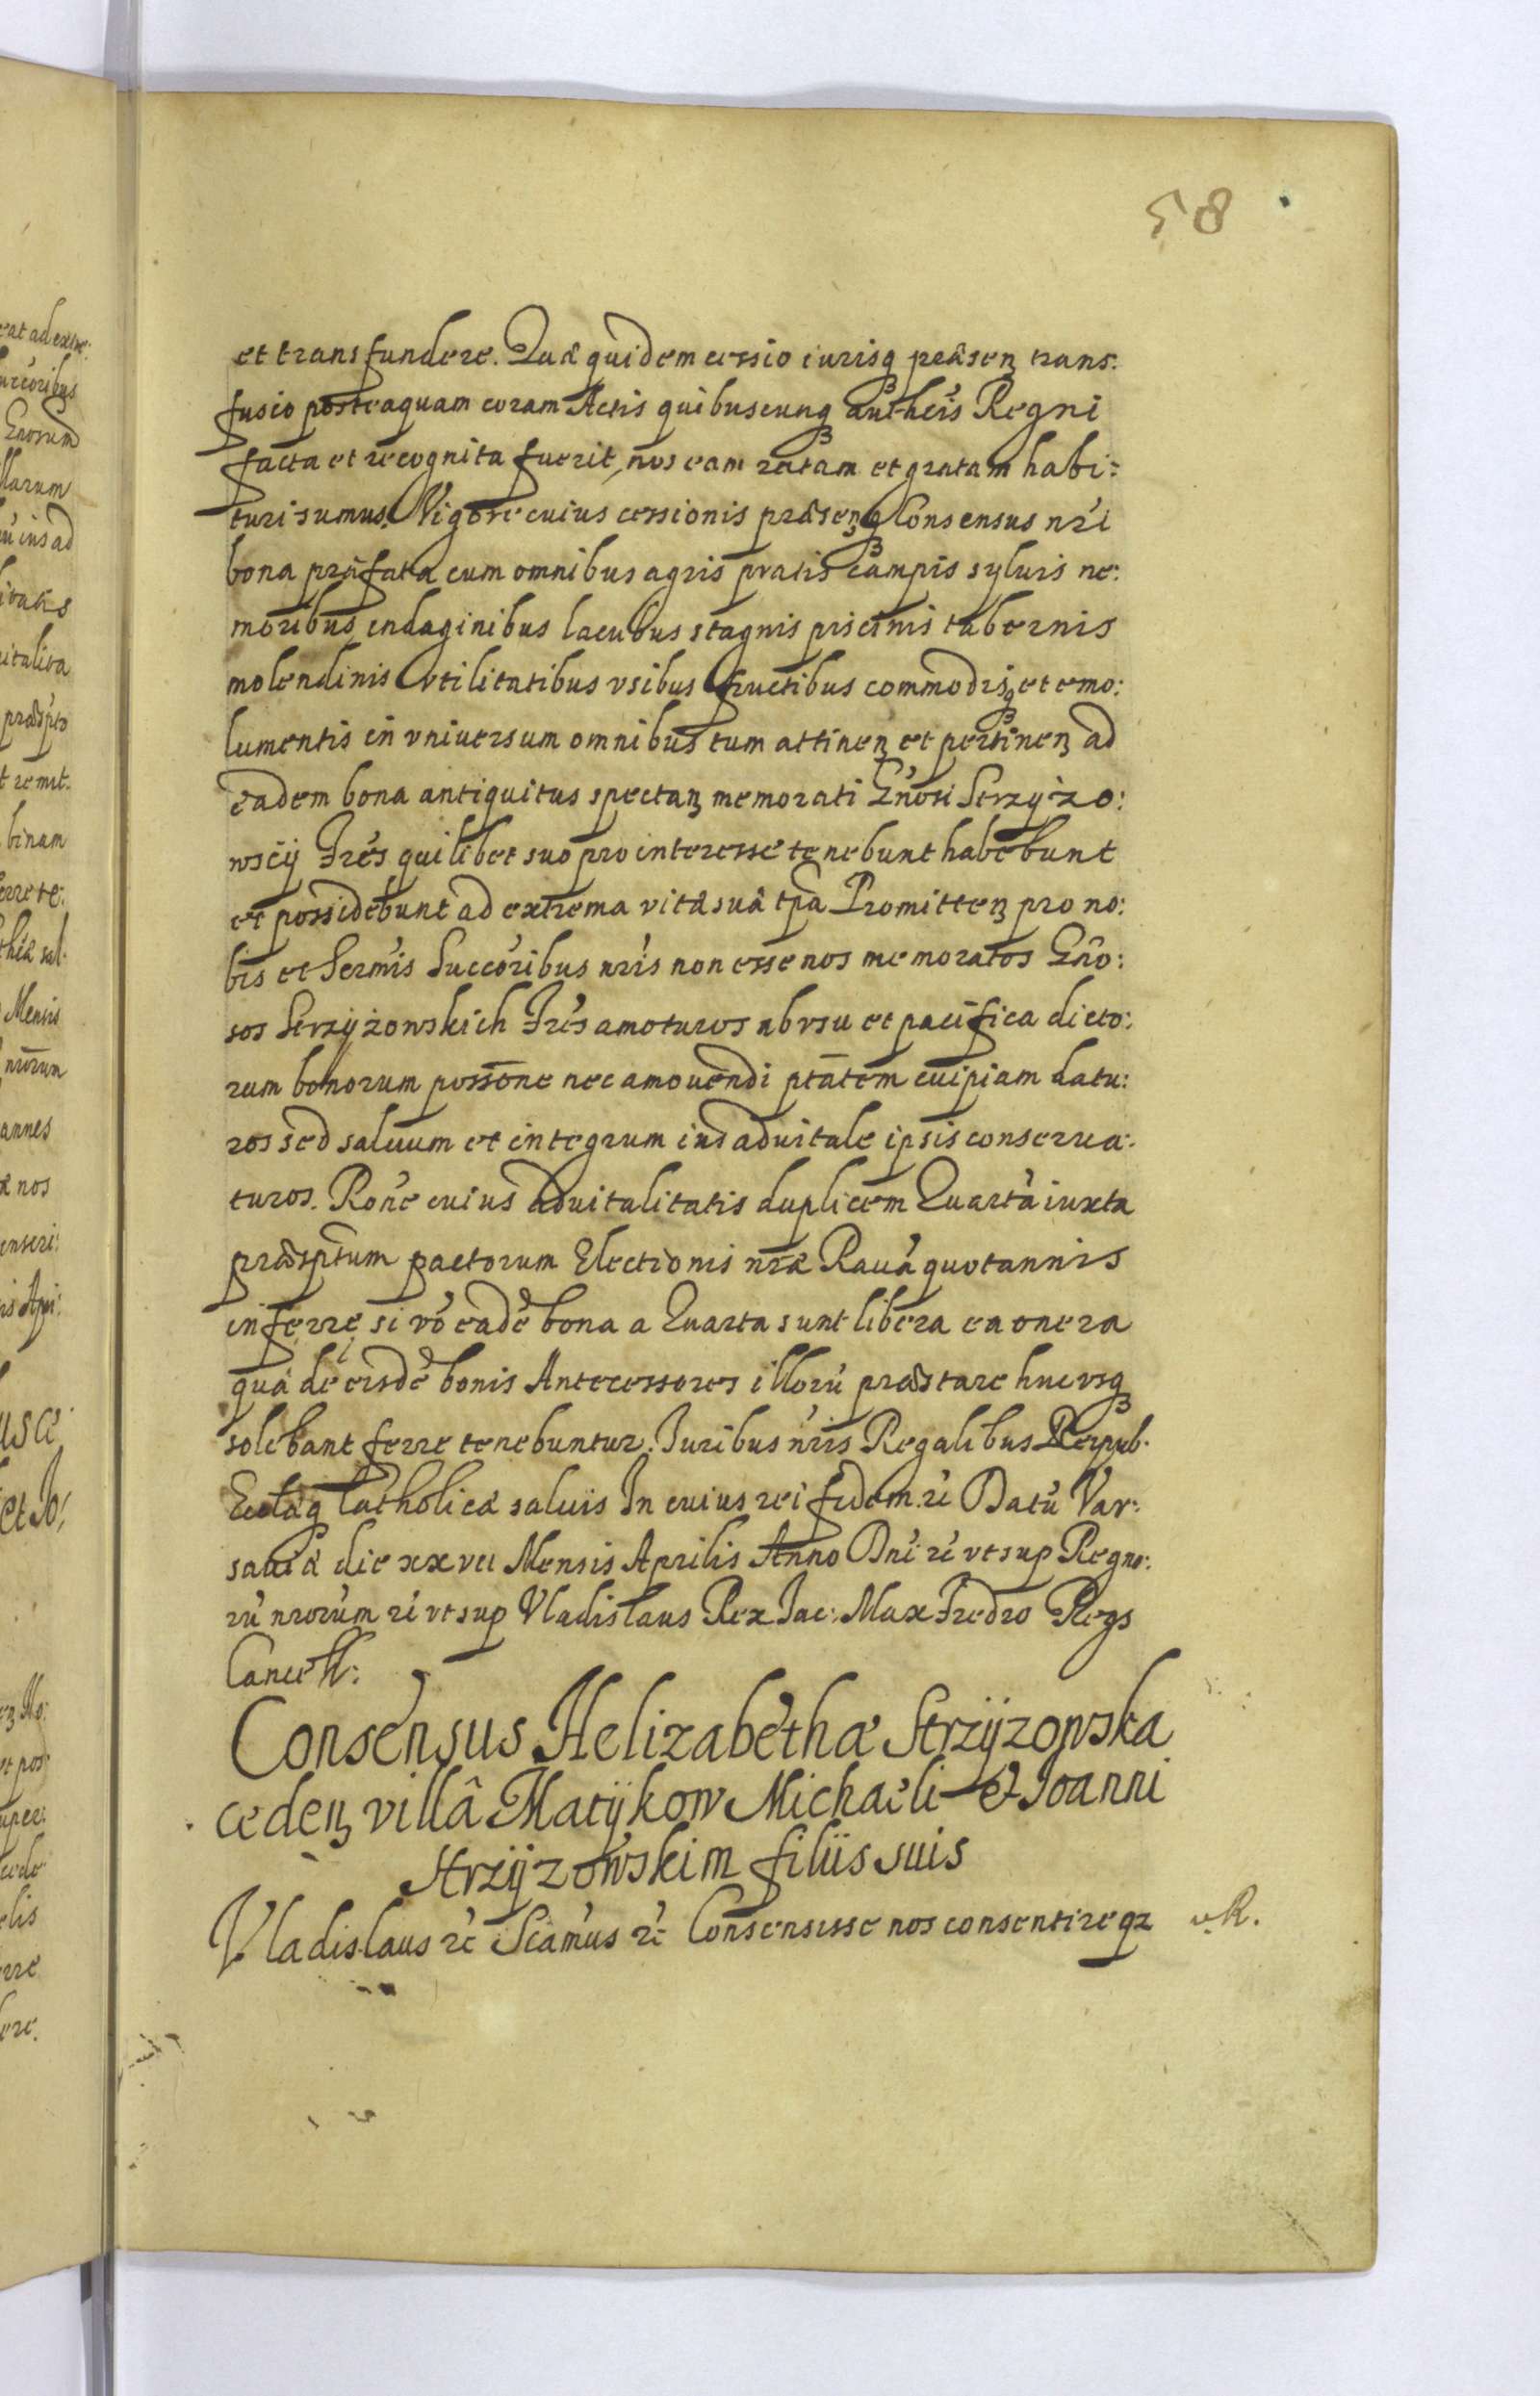 58
et transfundere. Quæ quidem cessio iurisq præsenȝ trans:
fusio posteaquam coram Actis quibuscunq autheis Regni
facta et recognita fuerit, nos eam ratam et gratam habi:
turi sumus. Vigore cuius cessionis præsenȝq Consensus nri
bona præfata cum omnibus agris pratis campis syluis ne:
moribus indaginibus lacubus stagnis piscinis tabernis
molendinis vtilitatibus vsibus fructibus commodisq et emo:
lumentis in vniuersum omnibus tum attinenȝ et pertinenȝ ad
eadem bona antiquitus spectanȝ memorati Gnosi Strzyżo:
wscij Fres quilibet suo pro interesse tenebunt habebunt
et possidebunt ad extrema vitæ suâ tpa Promittenȝ pro no:
bis et Sermis Succoribus nris non esse nos memoratos Gno:
sos Strzyżowskich Fres amoturos ab vsu et pacifica dicto:
rum bonorum possone nec amouendi ptatem cuipiam datu:
ros sed saluum et integrum ius aduitale ipsis conserua:
turos. Rone cuius aduitalitatis duplicem Quartà iuxta
præsptum pactorum Electionis nræ Rauà quotannis
inferre, si vo eadē bona a Quarta sunt libera ea onera
quà de eisdē bonis Antecessores illorū præstare hucvsq
solebant ferre tenebuntur. Iuribus nris Regalibus Reipub.
Ecclæq Catholicæ saluis In cuius rei fidem rc Datū Var:
sauiæ die xxvii Mensis Aprilis Anno Dni rc vt sup Regno:
rū nrorum rc vt sup Vladislaus Rex Jac: Max Fredro Regs
Cancell:
Consensus Helizabethæ Strzÿzowska
cedenȝ villâ Matÿkow Michaëli et Joanni
Strzÿzowskim filiis suis
Vladislaus rc Scamus rc Consensisse nos consentireqz R.